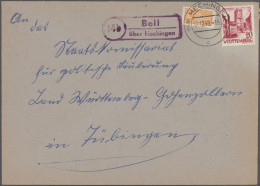 An
das
Staatskommissariat
für politische Säuberung
Land Württemberg-Hohenzollern
in Tübingen
14b
Beil
über Hechingen
HECHINGEN
WÜRTTEMBERG